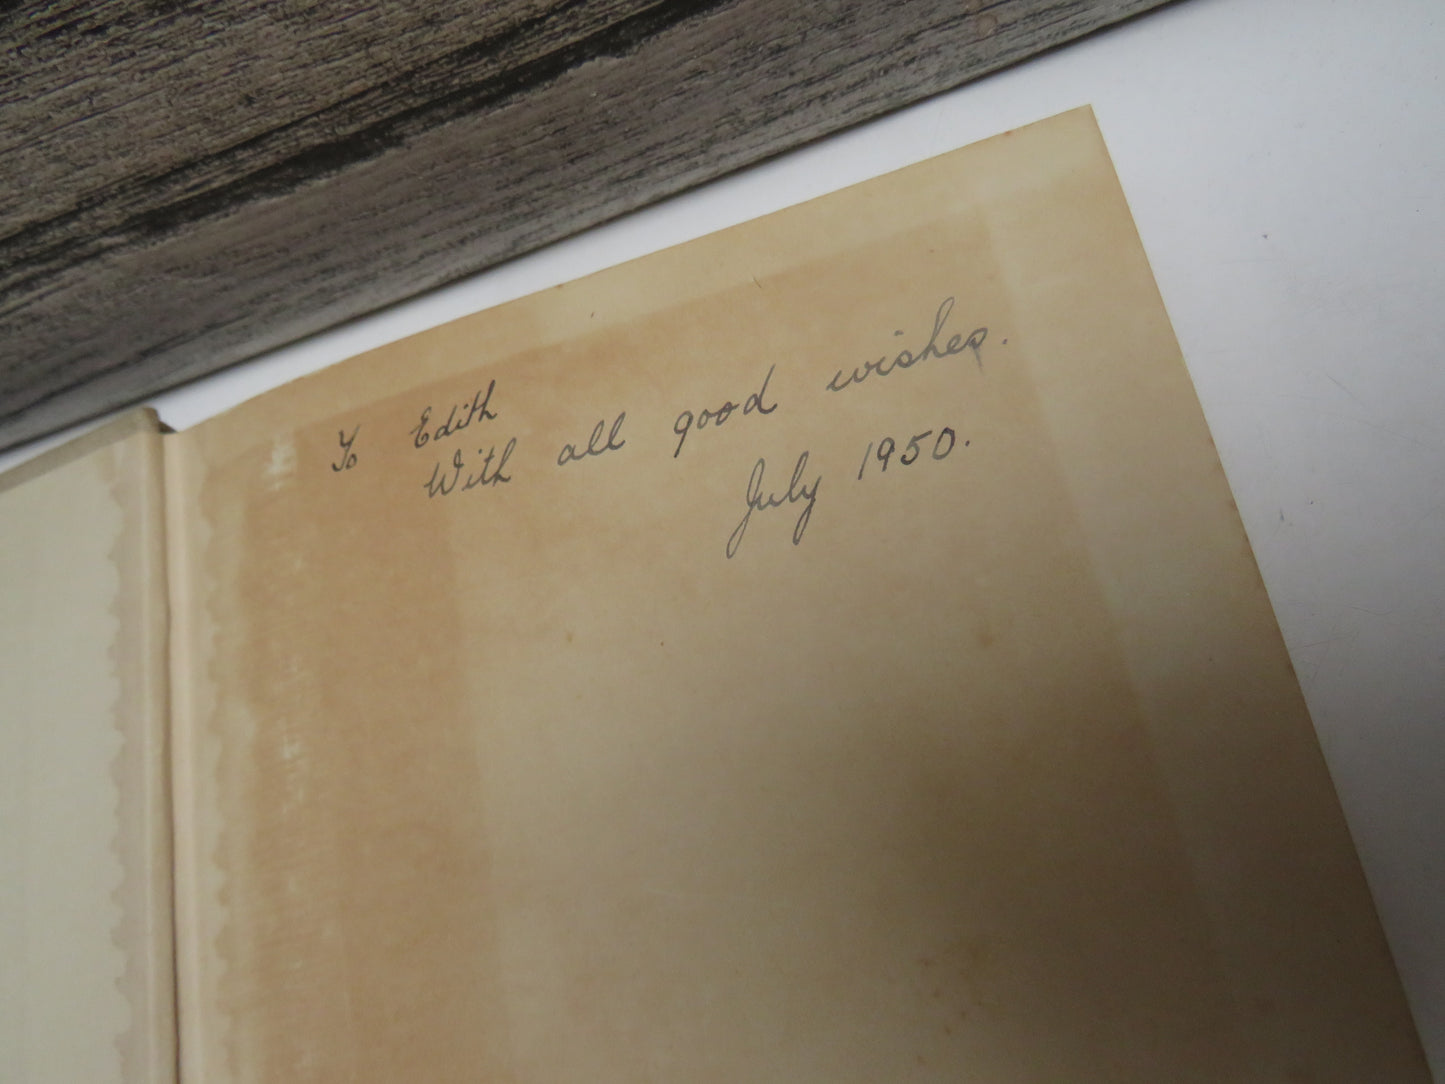 To Edith
With all good wishes.
July 1950.